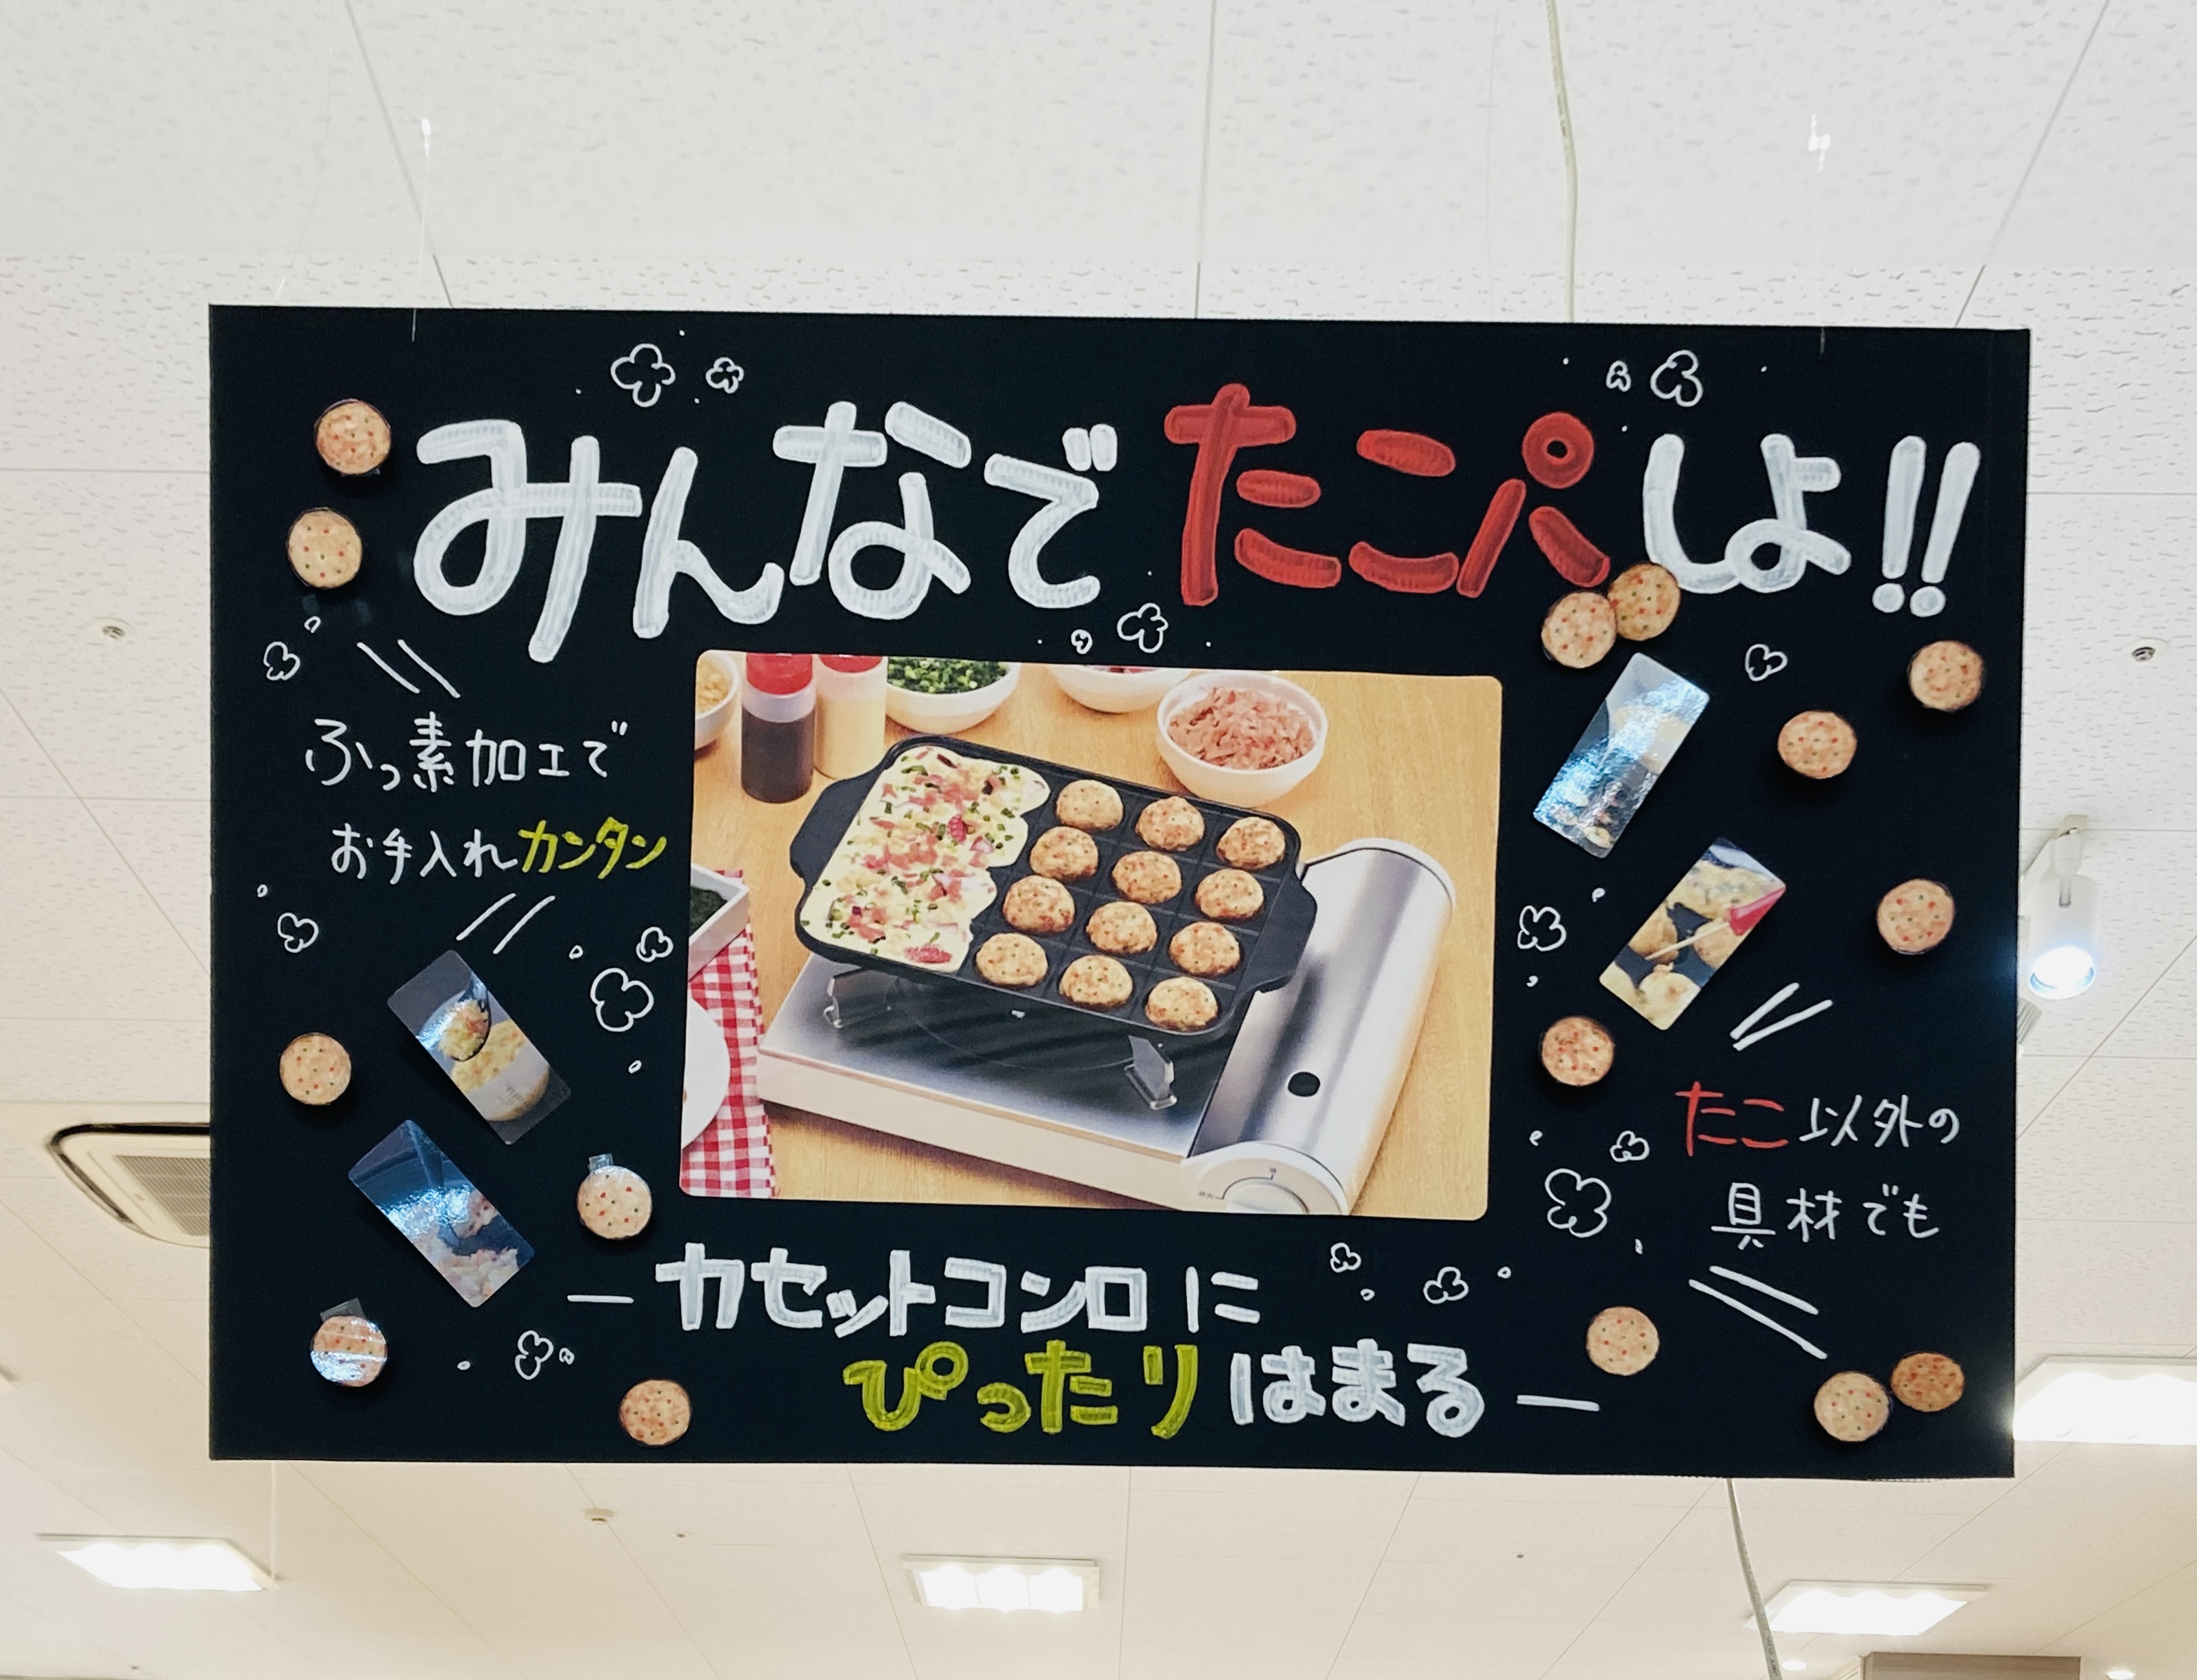 みんなでたこパしよ!!
ふっ素加工で
お手入れカンタン
たこ以外の
具材でも
カセットコンロに
ぴったりはまる